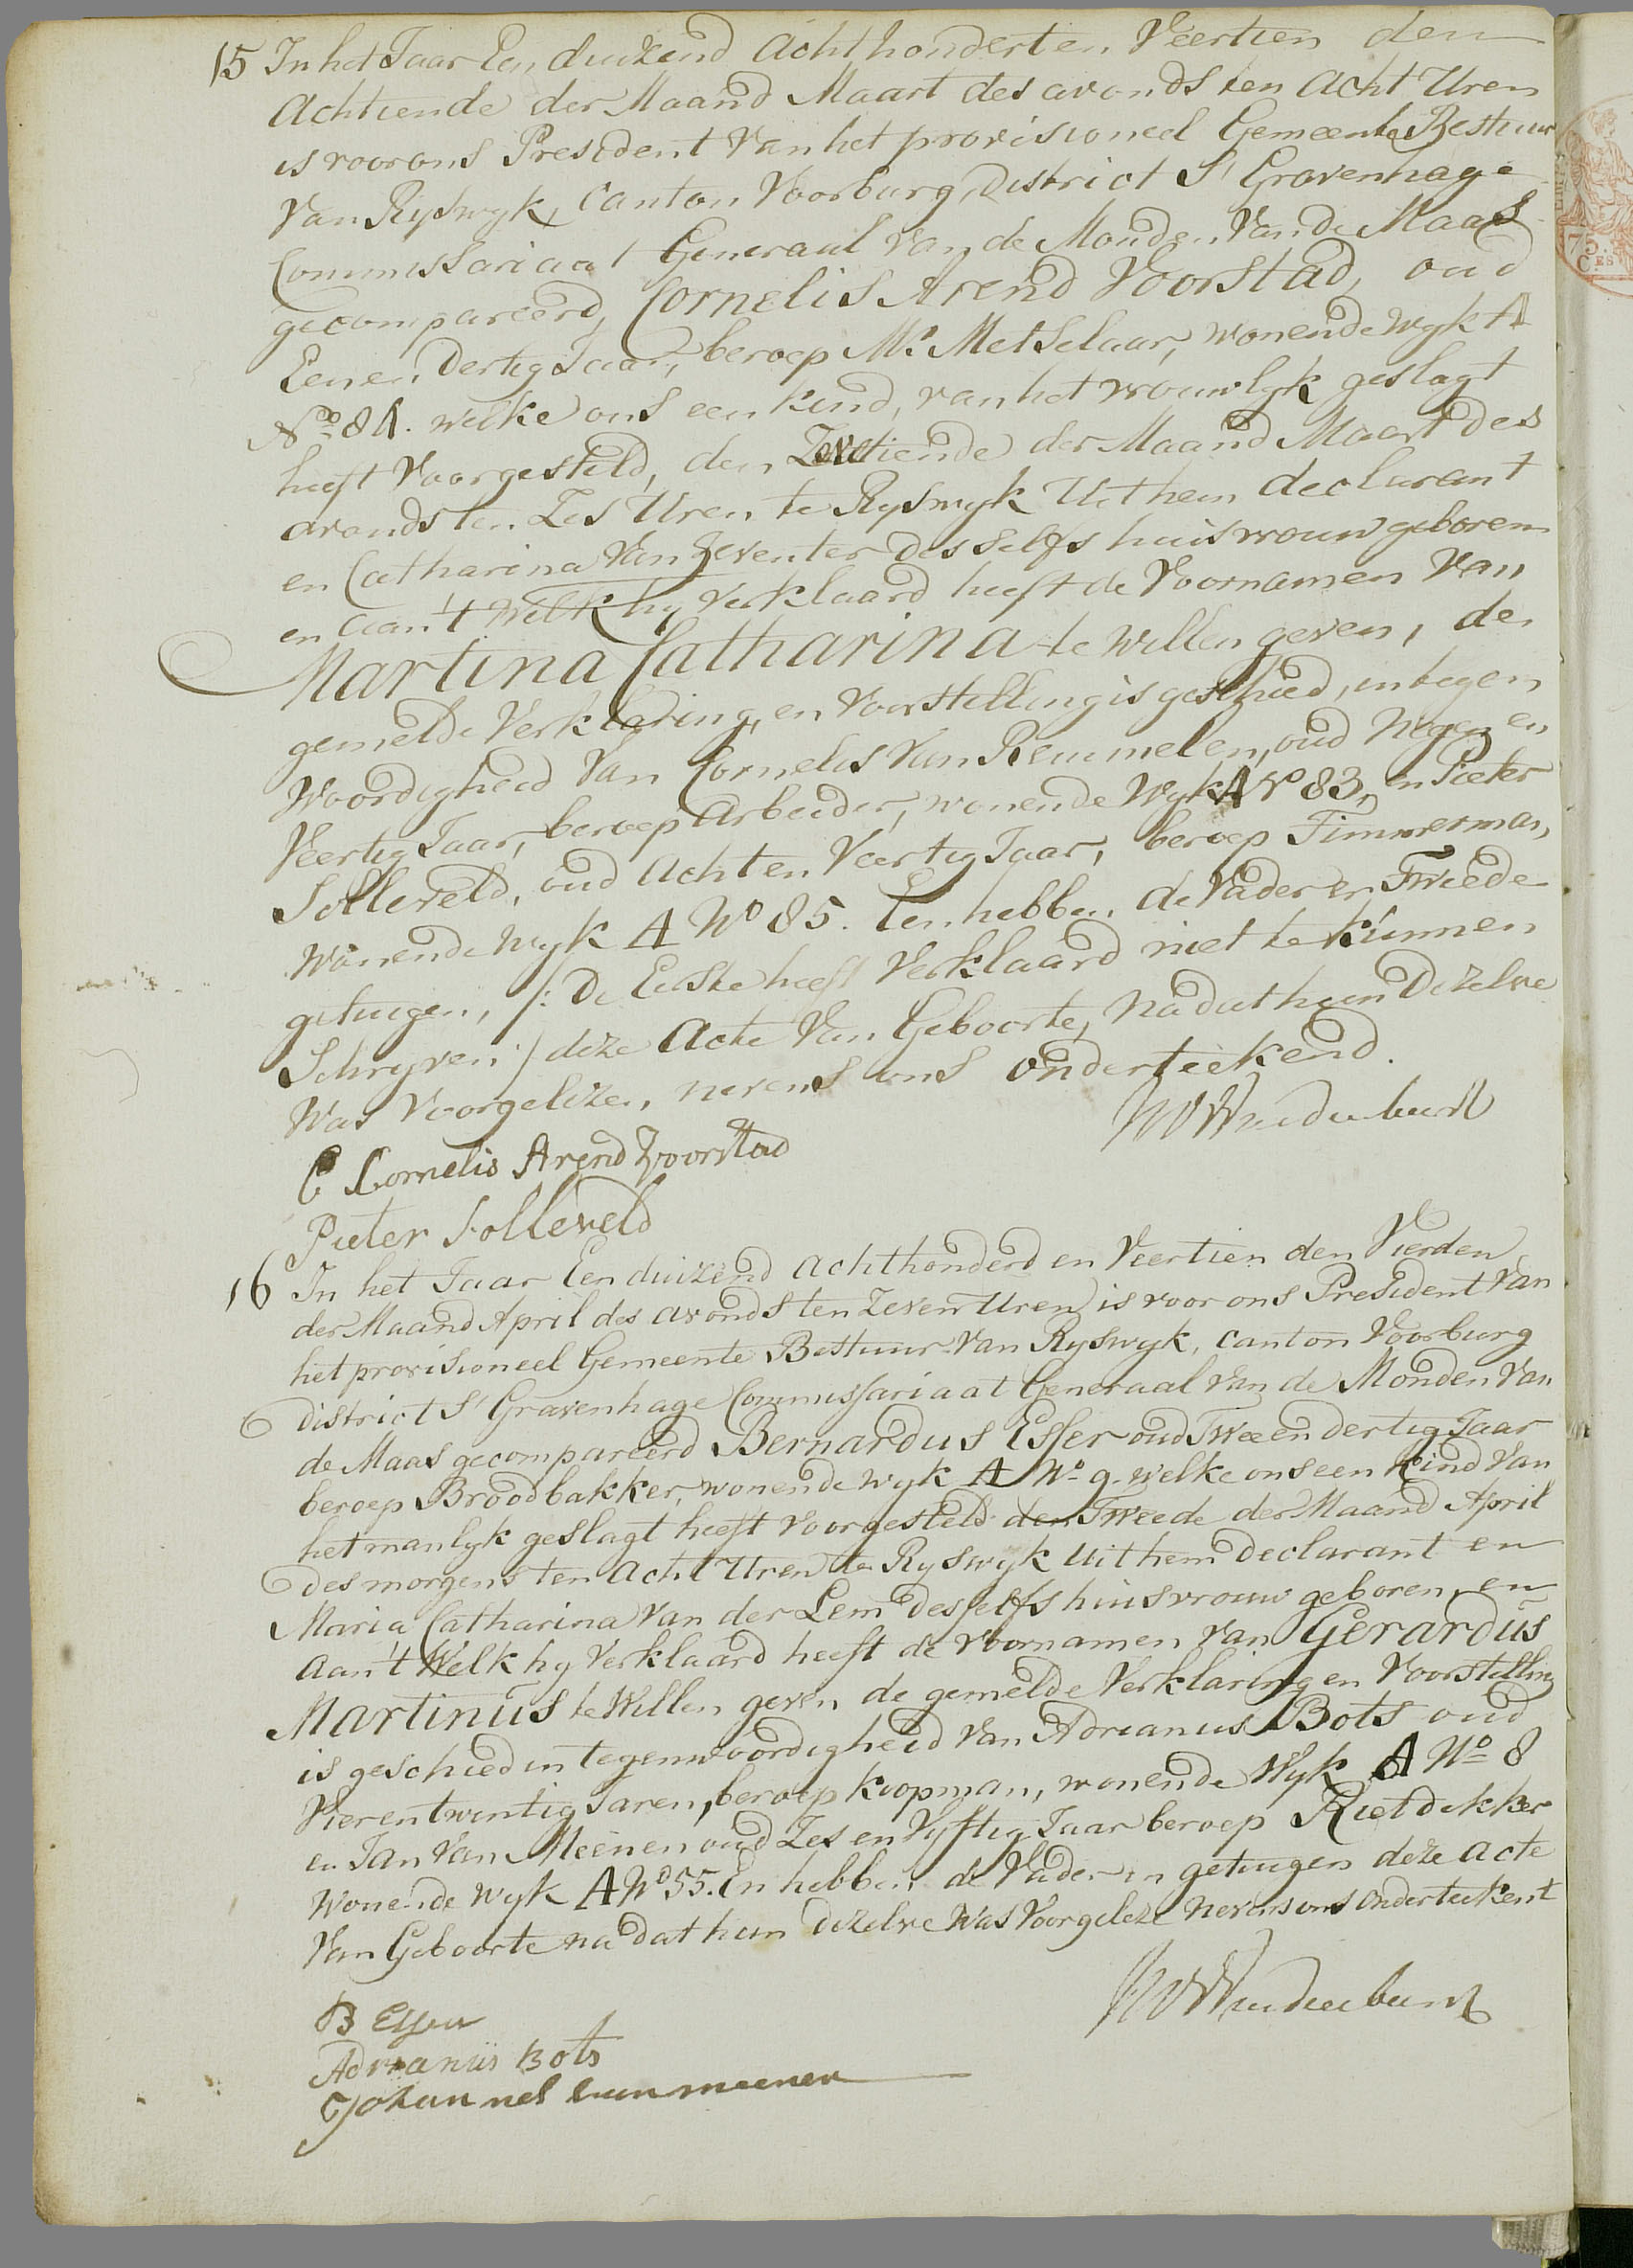 15 In het Jaar Een duizend Acht honderten Veertien den
Achtiende der Maand Maart des avonds ten Acht Uren
is voor ons President Van het provisioneel Gemeente Bestuur
Van Ryswyk, Canton Voorburg, District S' Gravenhage
Commissariaat Generaal Van de Monden Van de Maas
gecompareerd, Cornelis Arend Voorstad, oud
Een en Dertig Jaar, beroep Mr. Metselaar, wonende Wyk A
No. 81. welke ons een kind, van het vrouwlyk geslagt
heeft Voorgesteld, den der Maand Maart des
avonds ten Zes Uren te Ryswyk Uit hem declarant
en Catharina Van Zeventer desselfs huisvrouw geboren
en aan 't Welk hy Verklaard heeft de Voornamen Van
Martina Catharina te Willen geven, de
gemelde Verklaring, en Voorstelling is geschied, in tegen
Woordigheid Van Cornelis Van Remmelen, oud Negen en
Veertig Jaar, beroep Arbeider, wonende Wyk A No 83, en Pieter
Solleveld, oud Acht en Veertig Jaar, beroep Timmerman,
Wonende Wyk A No 85. En hebben de Vader en Tweede
getuigen, /: De Eerste heeft Verklaard niet te kunnen
Schryven :/ deze Acte Van Geboorte, Nadat hem Dezelve
Was Voorgelezen, nevens ons onderteekend.
C Cornelis Arend Voorstad
Pieter Solleveld
16 In het Jaar Een duizend Achthonderd en Veertien den Vierden
der Maand April des avonds ten Zeven Uren is voor ons President Van
het provisioneel Gemeente Bestuur Van Ryswyk, Canton Voorburg
District S' Gravenhage Commissariaat Generaal Van de Monden Van
de Maas gecompareerd Bernardus Esser oud Twee en dertig Jaar
beroep Broodbakker, wonende wyk A No. 9. welke ons een Kind Van
het manlyk geslagt heeft Voorgesteld den Tweede der Maand April
des morgens ten Acht Uren te Ryswyk Uit hem Declarant en
Maria Catharina Van der Lem desselfs huisvrouw geboren, en
aan 't Welk hy Verklaard heeft de Voornamen Van Gerardus
Martinus te Willen geven de gemelde Verklaring en Voorstelling
is geschied in tegenwoordigheid Van Adrianus Bots oud
Vier en twintig Jaren, beroep koopman, wonende Wyk A No 8
en Jan Van Meenen oud Zes en Vyftig Jaar beroep Rietdekker
Wonende Wyk A No 55. En hebben de Vader en getuigen deze Acte
Van Geboorte na dat hun dezelve Was Voorgeleze nevens ons onderteekent
B Esser
Adrianus Bots
Johannes van meenen
75.
CES